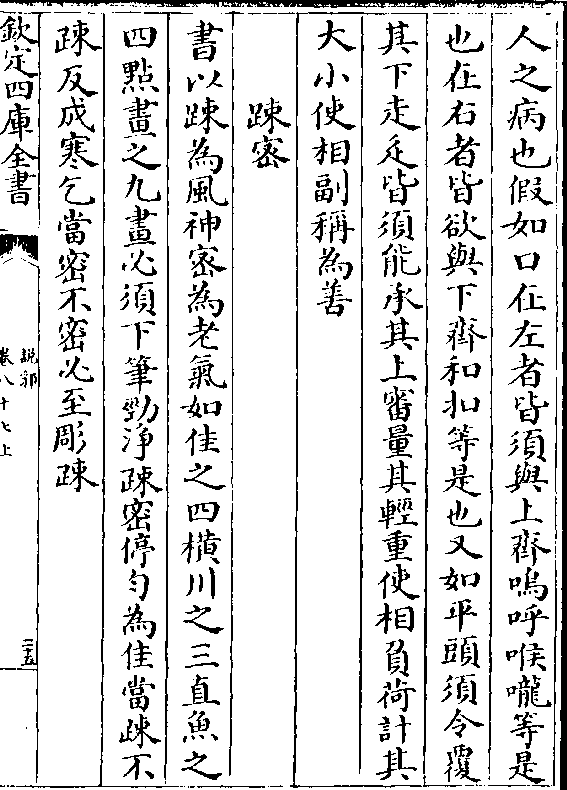 人之病也假如口在左者皆須與上齊嗚呼喉嚨等是
也在右者皆欲與下齊和扣等是也又如平頭須令覆
其下走辵皆須能承其上審量其輕重使相負荷計其
大小使相副稱為善
疎密
書以疎為風神密為老氣如佳之四橫川之三直魚之
四點畫之九畫必須下筆勁淨疎密停勻為佳當疎不
疎反成寒乞當密不密必至彫疎
欽定四庫全書
說郛
卷八十七上
二五